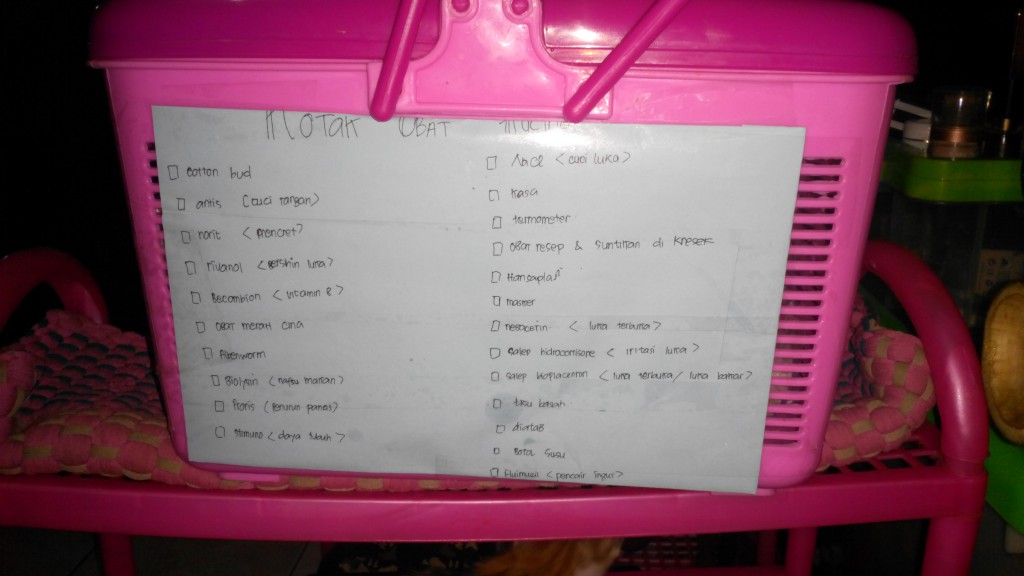 KOTAK OBAT
cotton bud
antis (cuci tangan)
norit <mencret>
rivanol <bersihin luka>
Becombion <vitamin B>
obat merah cina
Albenworm
Biolysin (nafsu makan)
Praxis (penurun panas)
Stimuno <daya tubuh>
NaCl <cuci luka>
kasa
termometer
obat resep & suntikan di kresek
Hansaplast
masker
nebacetin <luka terbuka>
salep hidrocortisone <iritasi luka>
salep bioplacenton <luka terbuka/ luka bakar>
tisu basah
diatab
Botol susu
Fluimucil <pencair ingus>